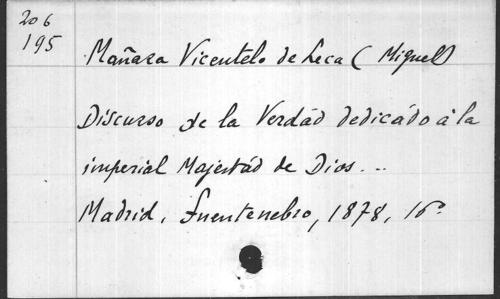 206
195
Mañara Vicentelo de Leca (Miguel)
Discurso de la Verdád dedicádo á la
imperial Majestád de Dios...
Madrid, Fuentenebro, 1878, 16º